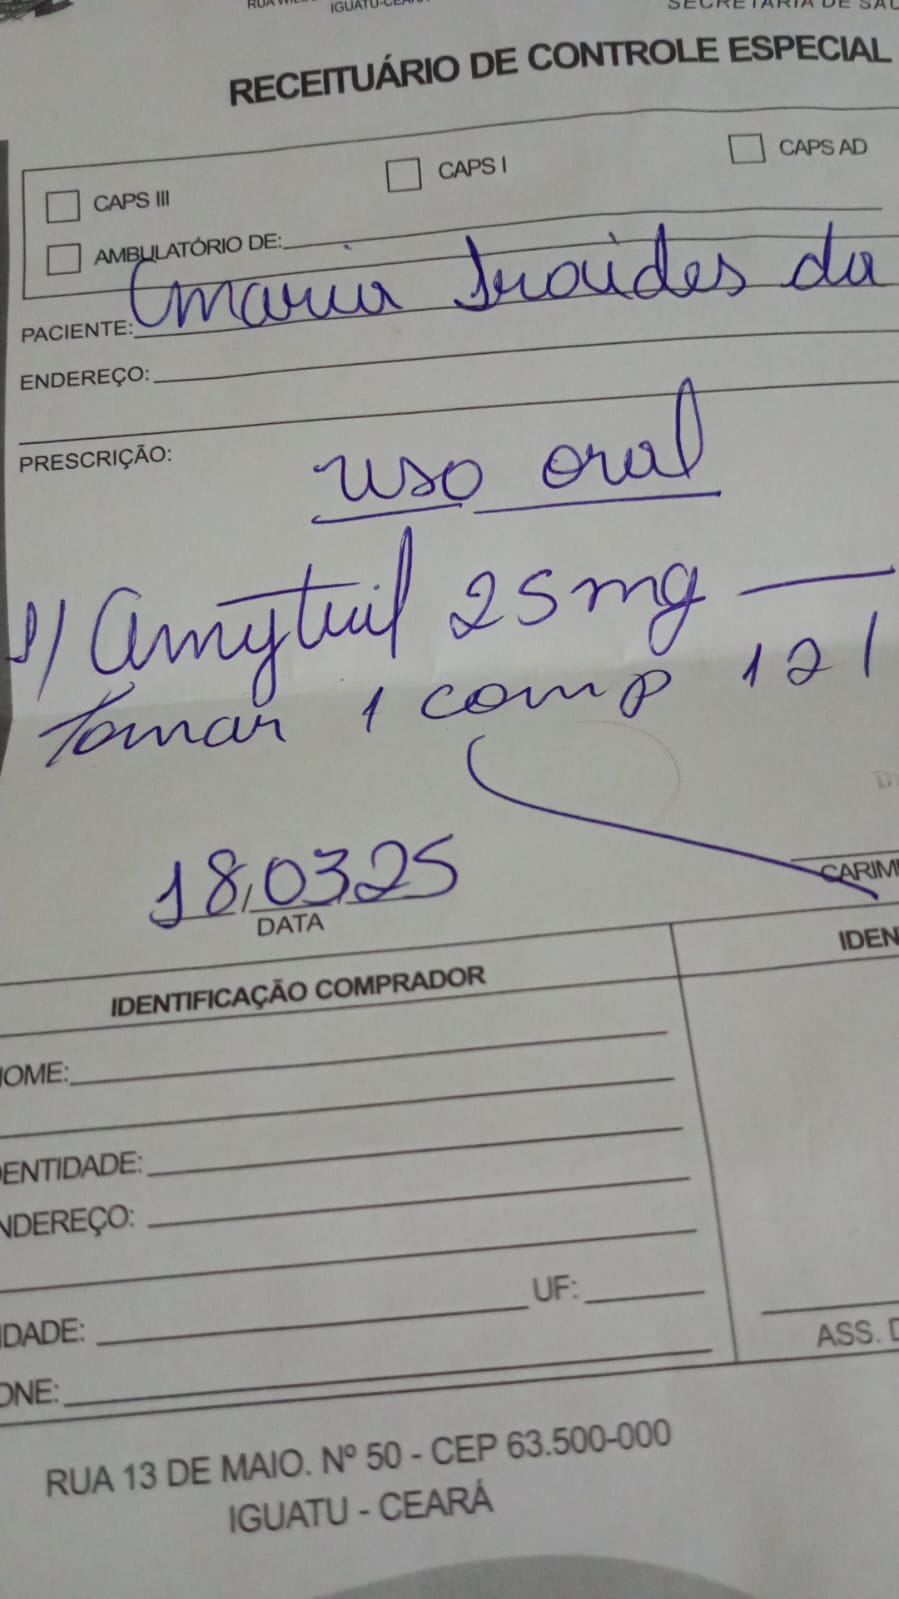 IGUATU-CEARÁ
RECEITUÁRIO DE CONTROLE ESPECIAL
CAPS III CAPS I CAPS AD
AMBULATÓRIO DE:
PACIENTE: Maria Iraides da
ENDEREÇO:
PRESCRIÇÃO:
uso oral
1) Amytril 25mg —
tomar 1 comp 12/
18,03,25
DATA
CARIM
IDENTIFICAÇÃO COMPRADOR IDEN
NOME:
DENTIDADE:
NDEREÇO:
IDADE: UF:
ONE:
ASS. D
RUA 13 DE MAIO. Nº 50 - CEP 63.500-000
IGUATU - CEARÁ